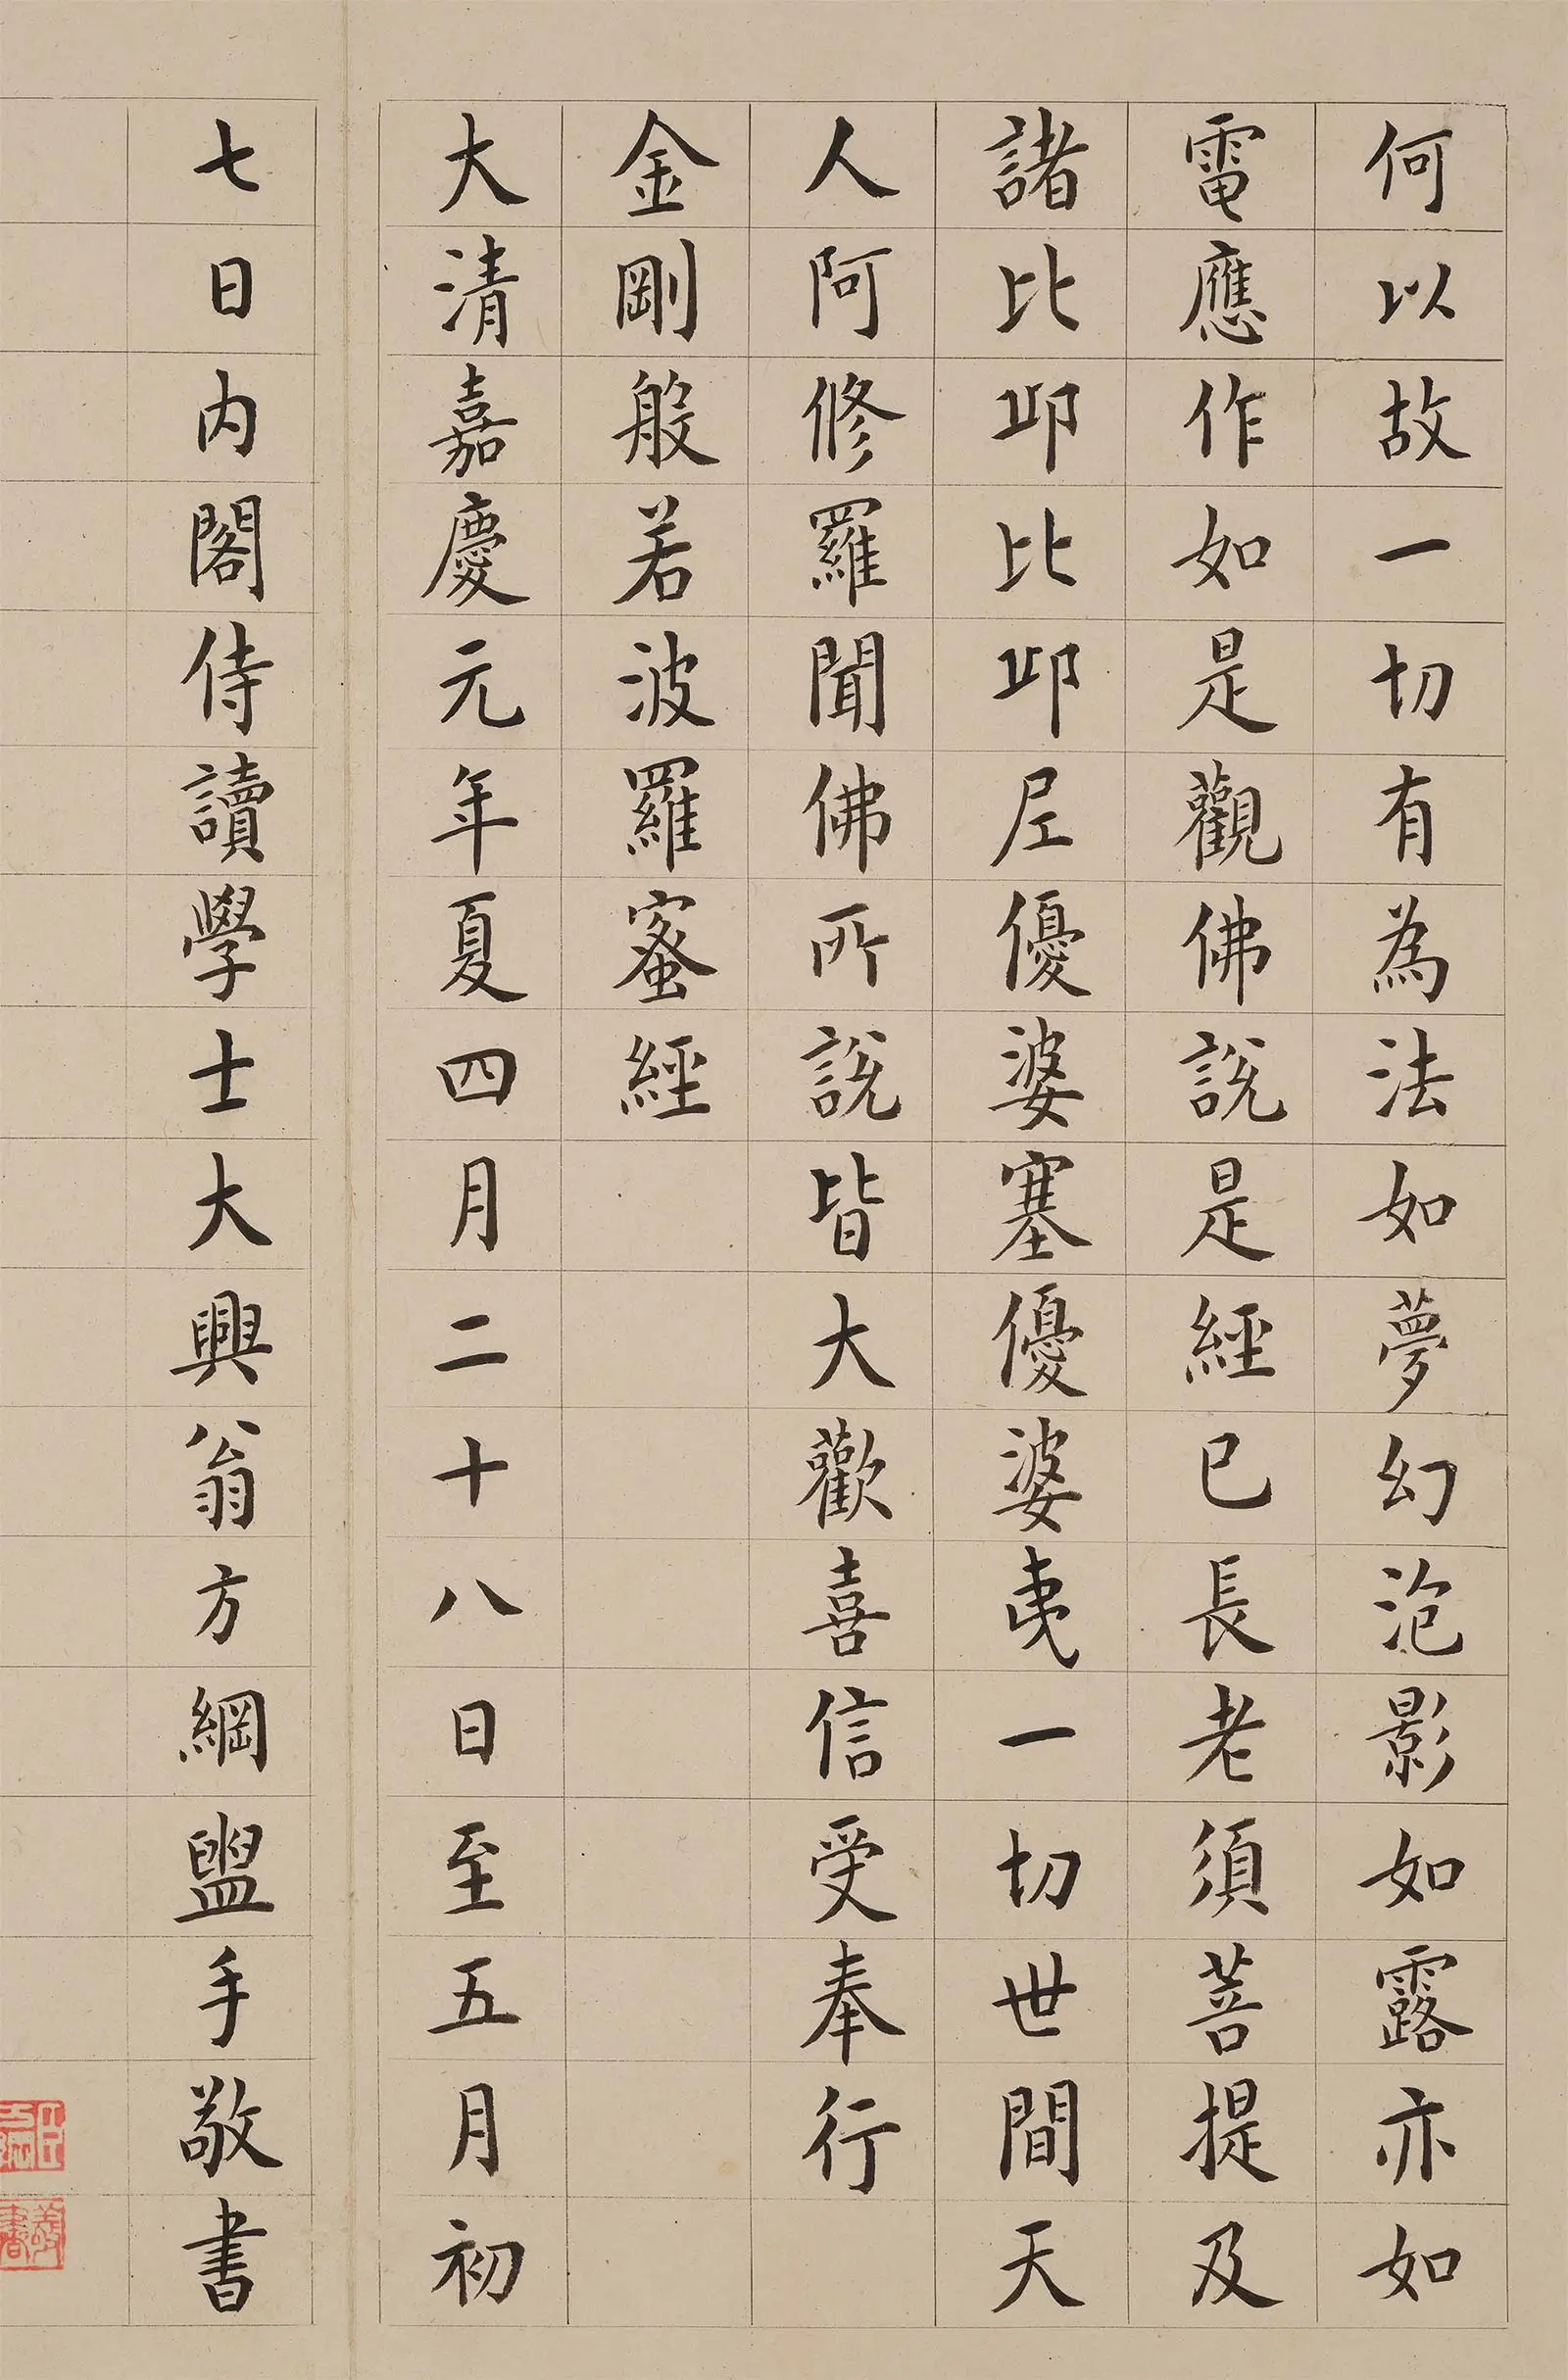 何以故一切有為法如夢幻泡影如露亦如
電應作如是觀佛說是經已長老須菩提及
諸比邱比邱尼優婆塞優婆夷一切世間天
人阿修羅聞佛所說皆大歡喜信受奉行
金剛般若波羅蜜經
大清嘉慶元年夏四月二十八日至五月初
七日內閣侍讀學士大興翁方綱盥手敬書